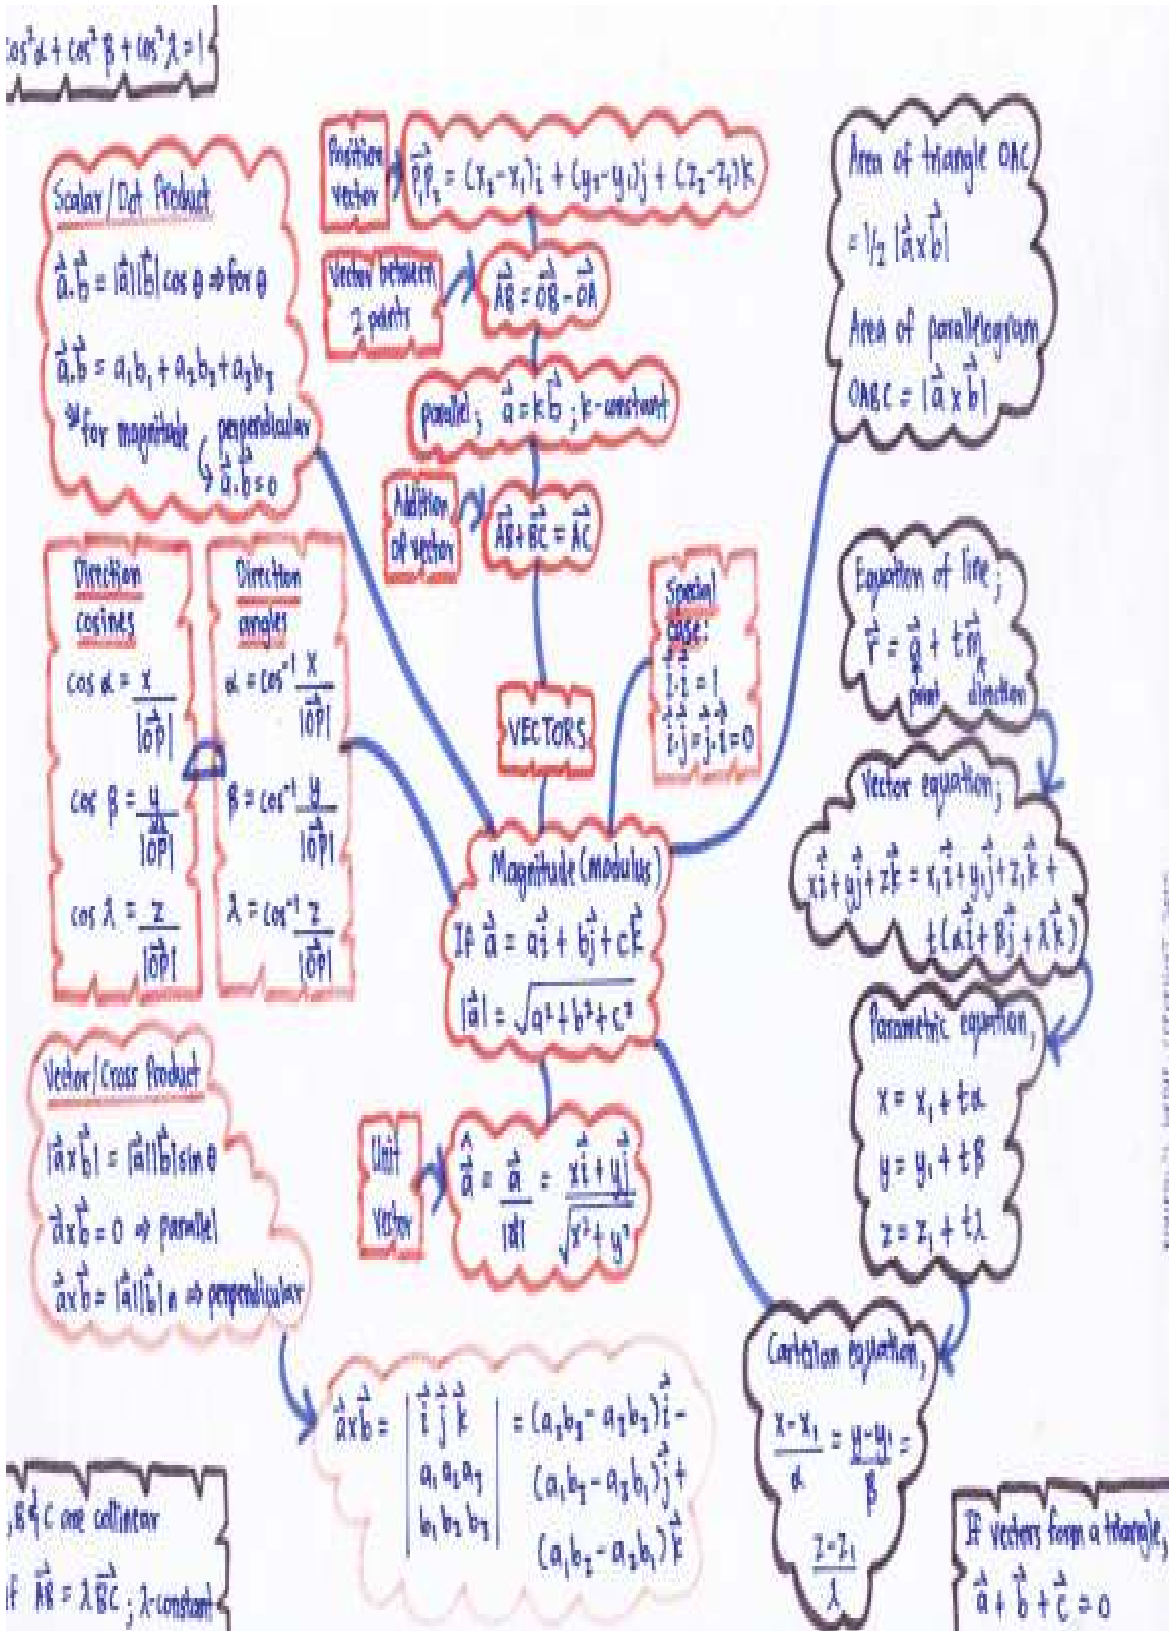 cos²α + cos²β + cos²λ = 1
Scalar/Dot Product
a⃗.b⃗ = |a⃗||b⃗| cos θ ⇒ for θ
a⃗.b⃗ = a₁b₁ + a₂b₂ + a₃b₃
for magnitude
perpendicular
a⃗.b⃗ = 0
Position
vector
P₁P₂ = (x₂-x₁)i + (y₂-y₁)j + (z₂-z₁)k
Vector between
2 points
AB = OB - OA
parallel; a⃗ = kb⃗ ; k-constant
Addition
of vector
AB + BC = AC
Area of triangle OAC
= 1/2 |a⃗ x b⃗|
Area of parallelogram
OABC = |a⃗ x b⃗|
Direction
cosines
cos α = x
|OP|
cos β = y
|OP|
cos λ = z
|OP|
Direction
angles
α = cos⁻¹ x
|OP|
β = cos⁻¹ y
|OP|
λ = cos⁻¹ z
|OP|
Special
case:
i⃗.i⃗ = 1
i⃗.j⃗ = j⃗.i⃗ = 0
VECTORS
Equation of line;
r⃗ = a⃗ + tm⃗
point direction
Vector equation;
xi⃗ + yj⃗ + zk⃗ = x₁i⃗ + y₁j⃗ + z₁k⃗ +
t(αi⃗ + βj⃗ + λk⃗)
Magnitude (modulus)
If a⃗ = ai⃗ + bj⃗ + ck⃗
|a⃗| = √a² + b² + c²
Parametric equation,
x = x₁ + tα
y = y₁ + tβ
z = z₁ + tλ
Vector/Cross Product
|a⃗ x b⃗| = |a⃗||b⃗| sin θ
a⃗ x b⃗ = 0 ⇒ parallel
a⃗ x b⃗ = |a⃗||b⃗| n ⇒ perpendicular
Unit
vector
â = a⃗ = xi⃗ + yj⃗
|a⃗| √x² + y²
Cartesian equation,
x-x₁ = y-y₁ =
α β
z-z₁
λ
a⃗ x b⃗ = | i⃗ j⃗ k⃗ | = (a₂b₃ - a₃b₂)i⃗ -
a₁ a₂ a₃ (a₁b₃ - a₃b₁)j⃗ +
b₁ b₂ b₃ (a₁b₂ - a₂b₁)k⃗
, B & C are collinear
if AB = λBC ; λ-constant
If vectors form a triangle,
a⃗ + b⃗ + c⃗ = 0